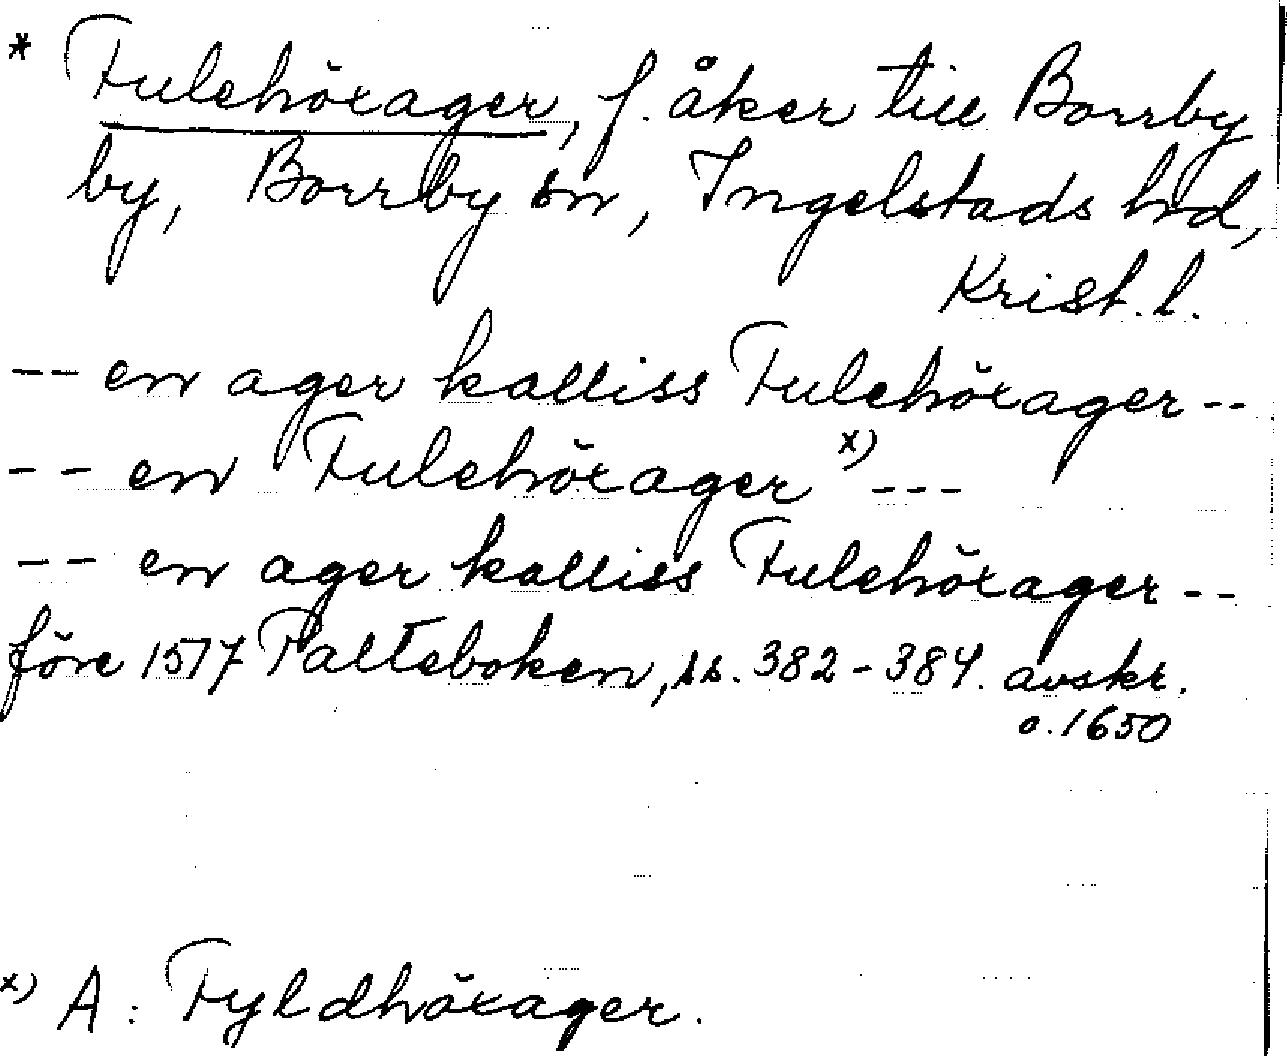 * Fulehöxager, f. åker till Borrby
by, Borrby sn, Ingelstads hd,
Krist. l.
-- en ager kalliss Fulehöxager --
-- en Fulehöxager x) ---
-- en ager kalliss Fulehöxager --
före 1577 Palteboken, ss. 382-384. avskr.
o. 1650
x) A: Fyldhöxager.